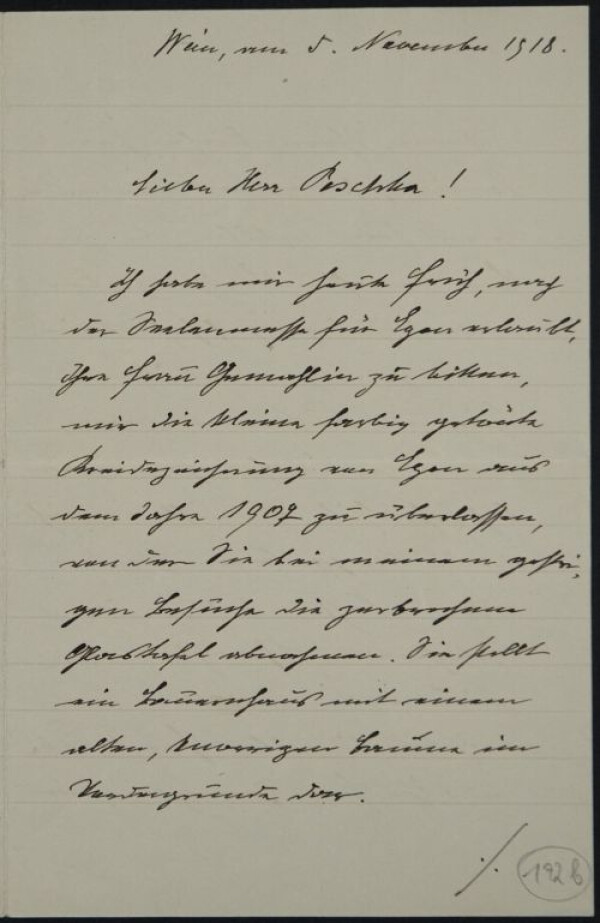 Wien, am 5. November 1918.
Lieber Herr Peschka!
Ich habe mir heute früh, nach
der Seelenmesse für Egon erlaubt,
Ihre Frau Gemahlin zu bitten,
mir die kleine farbig getönte
Kreidezeichnung von Egon aus
dem Jahre 1907 zu überlassen,
von der Sie bei meinem gestri-
gen Besuche die zerbrochene
Glastafel abnahmen. Sie stellt
ein Bauernhaus mit einem
alten, knorrigen Baume im
Vordergrunde dar.
./.
192 b